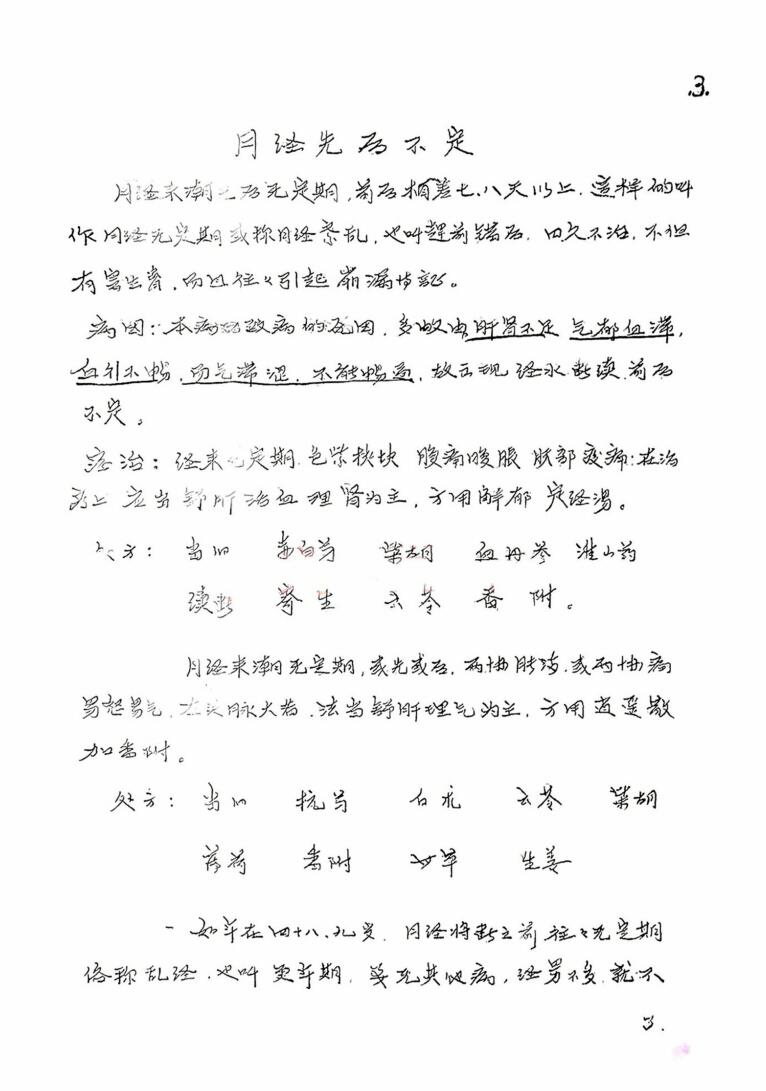 .3.
月经先后不定
月经来潮先后无定期,前后相差七.八天以上.这样的叫
作月经无定期或称月经紊乱,也叫赶前错后.日久不治.不但
有害生育.而且往々引起崩漏诸证。
病因:本病致病的原因.多收由肝肾不足 气郁血滞,
血行不畅.而气滞涩.不能畅通,故出现经水断续.前后
不定。
症治:经来无定期.色紫挟块 腹痛腰胀 肢部疼痛:在治
疗上应当舒肝治血理肾为主.方用解郁定经汤。
处方: 当归 赤白芍 柴胡 血丹参 淮山药
续断 寄生 云苓 香附。
月经来潮无定期,或先或后.两胁胀满.或两胁痛
易怒易气.左关脉大者.法当舒肝理气为主,方用逍遥散
加香附。
处方: 当归 杭芍 白朮 云苓 柴胡
薄荷 香附 甘草 生姜
一 如年在四十八.九岁.月经将断之前往々无定期
俗称乱经.也叫更年期.等无其他病,经男不多.就不
3.